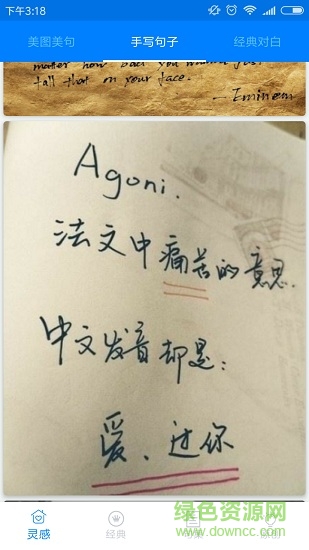 下午3:18
美图美句
手写句子
经典对白
matter how bad you wanna just
fall flat on your face.
— Eminem
Agoni.
法文中痛苦的意思.
中文发音却是：
爱、过你
灵感
经典
绿色资源网
www.downcc.com